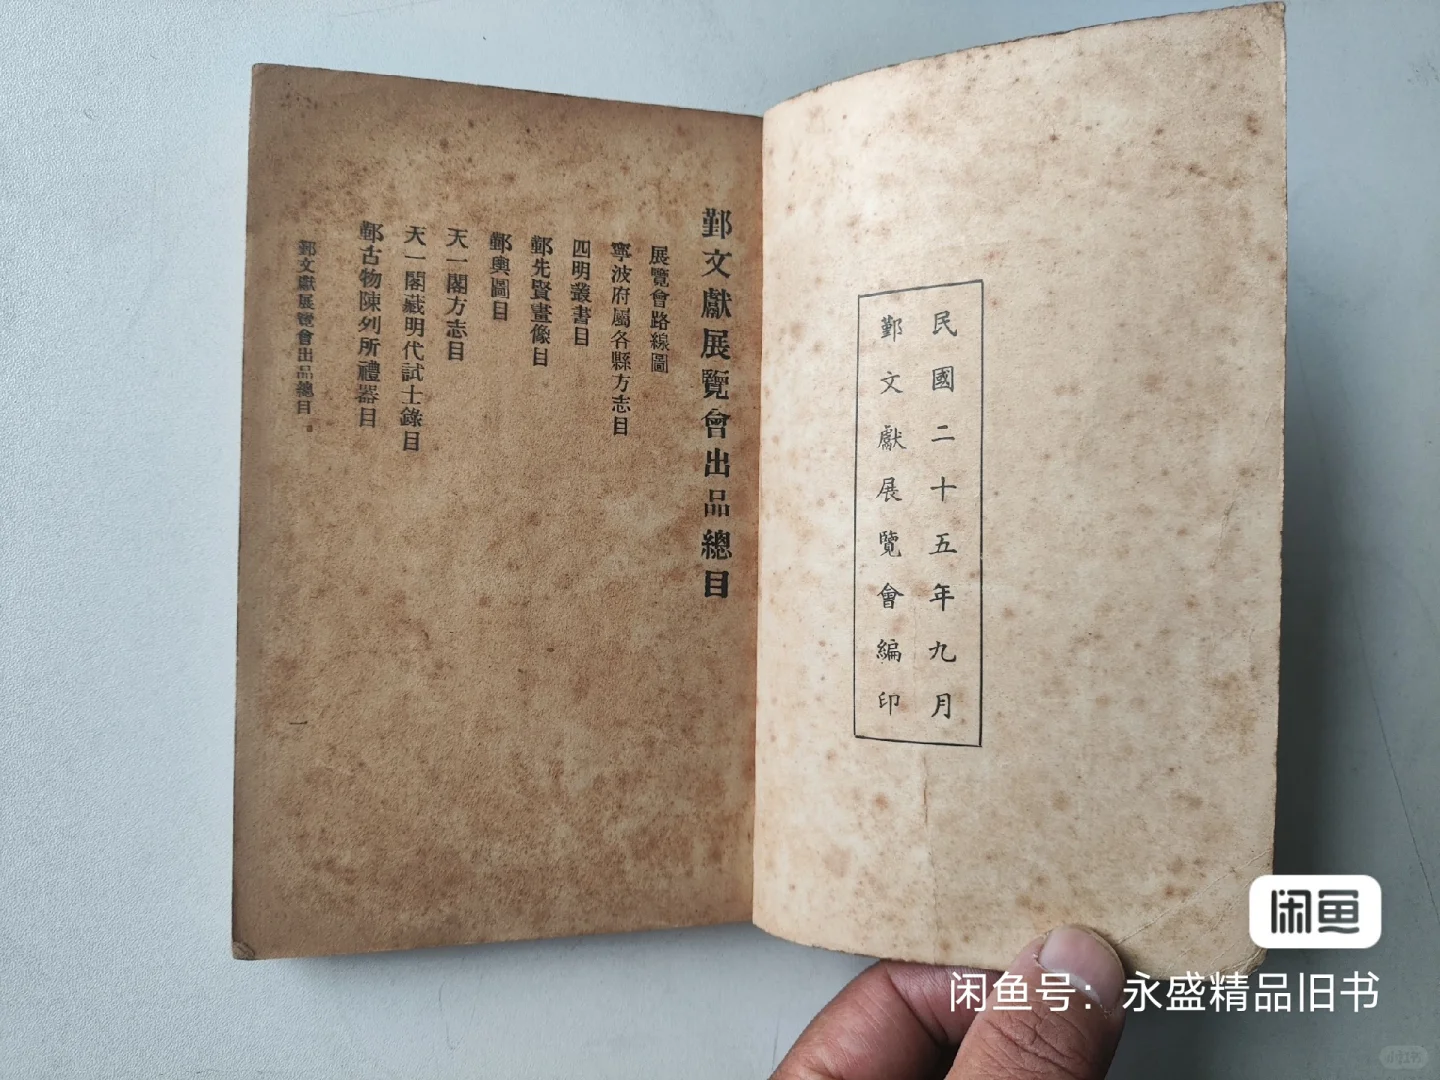 民國二十五年九月
鄞文獻展覽會編印
鄞文獻展覽會出品總目
展覽會路線圖
寧波府屬各縣方志目
四明叢書目
鄞先賢畫像目
鄞輿圖目
天一閣方志目
天一閣藏明代試士錄目
鄞古物陳列所禮器目
鄞文獻展覽會出品總目。
一
闲鱼
闲鱼号：永盛精品旧书
小红书